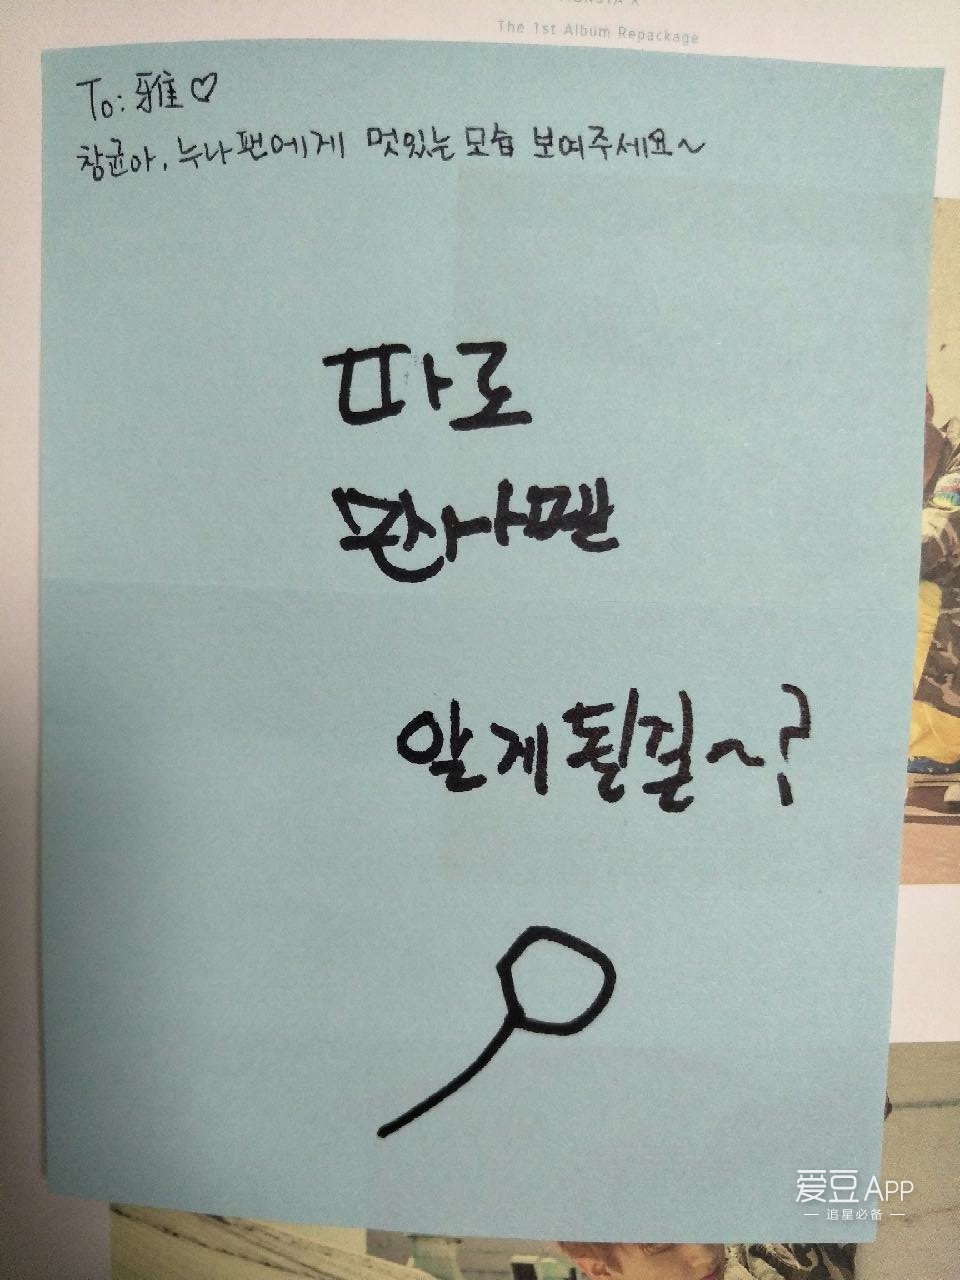 MONSTA X
The 1st Album Repackage
To: 雅♡
창균아, 누나팬에게 멋있는 모습 보여주세요~
따로
만나면
알게 될걸~?
爱豆APP
追星必备